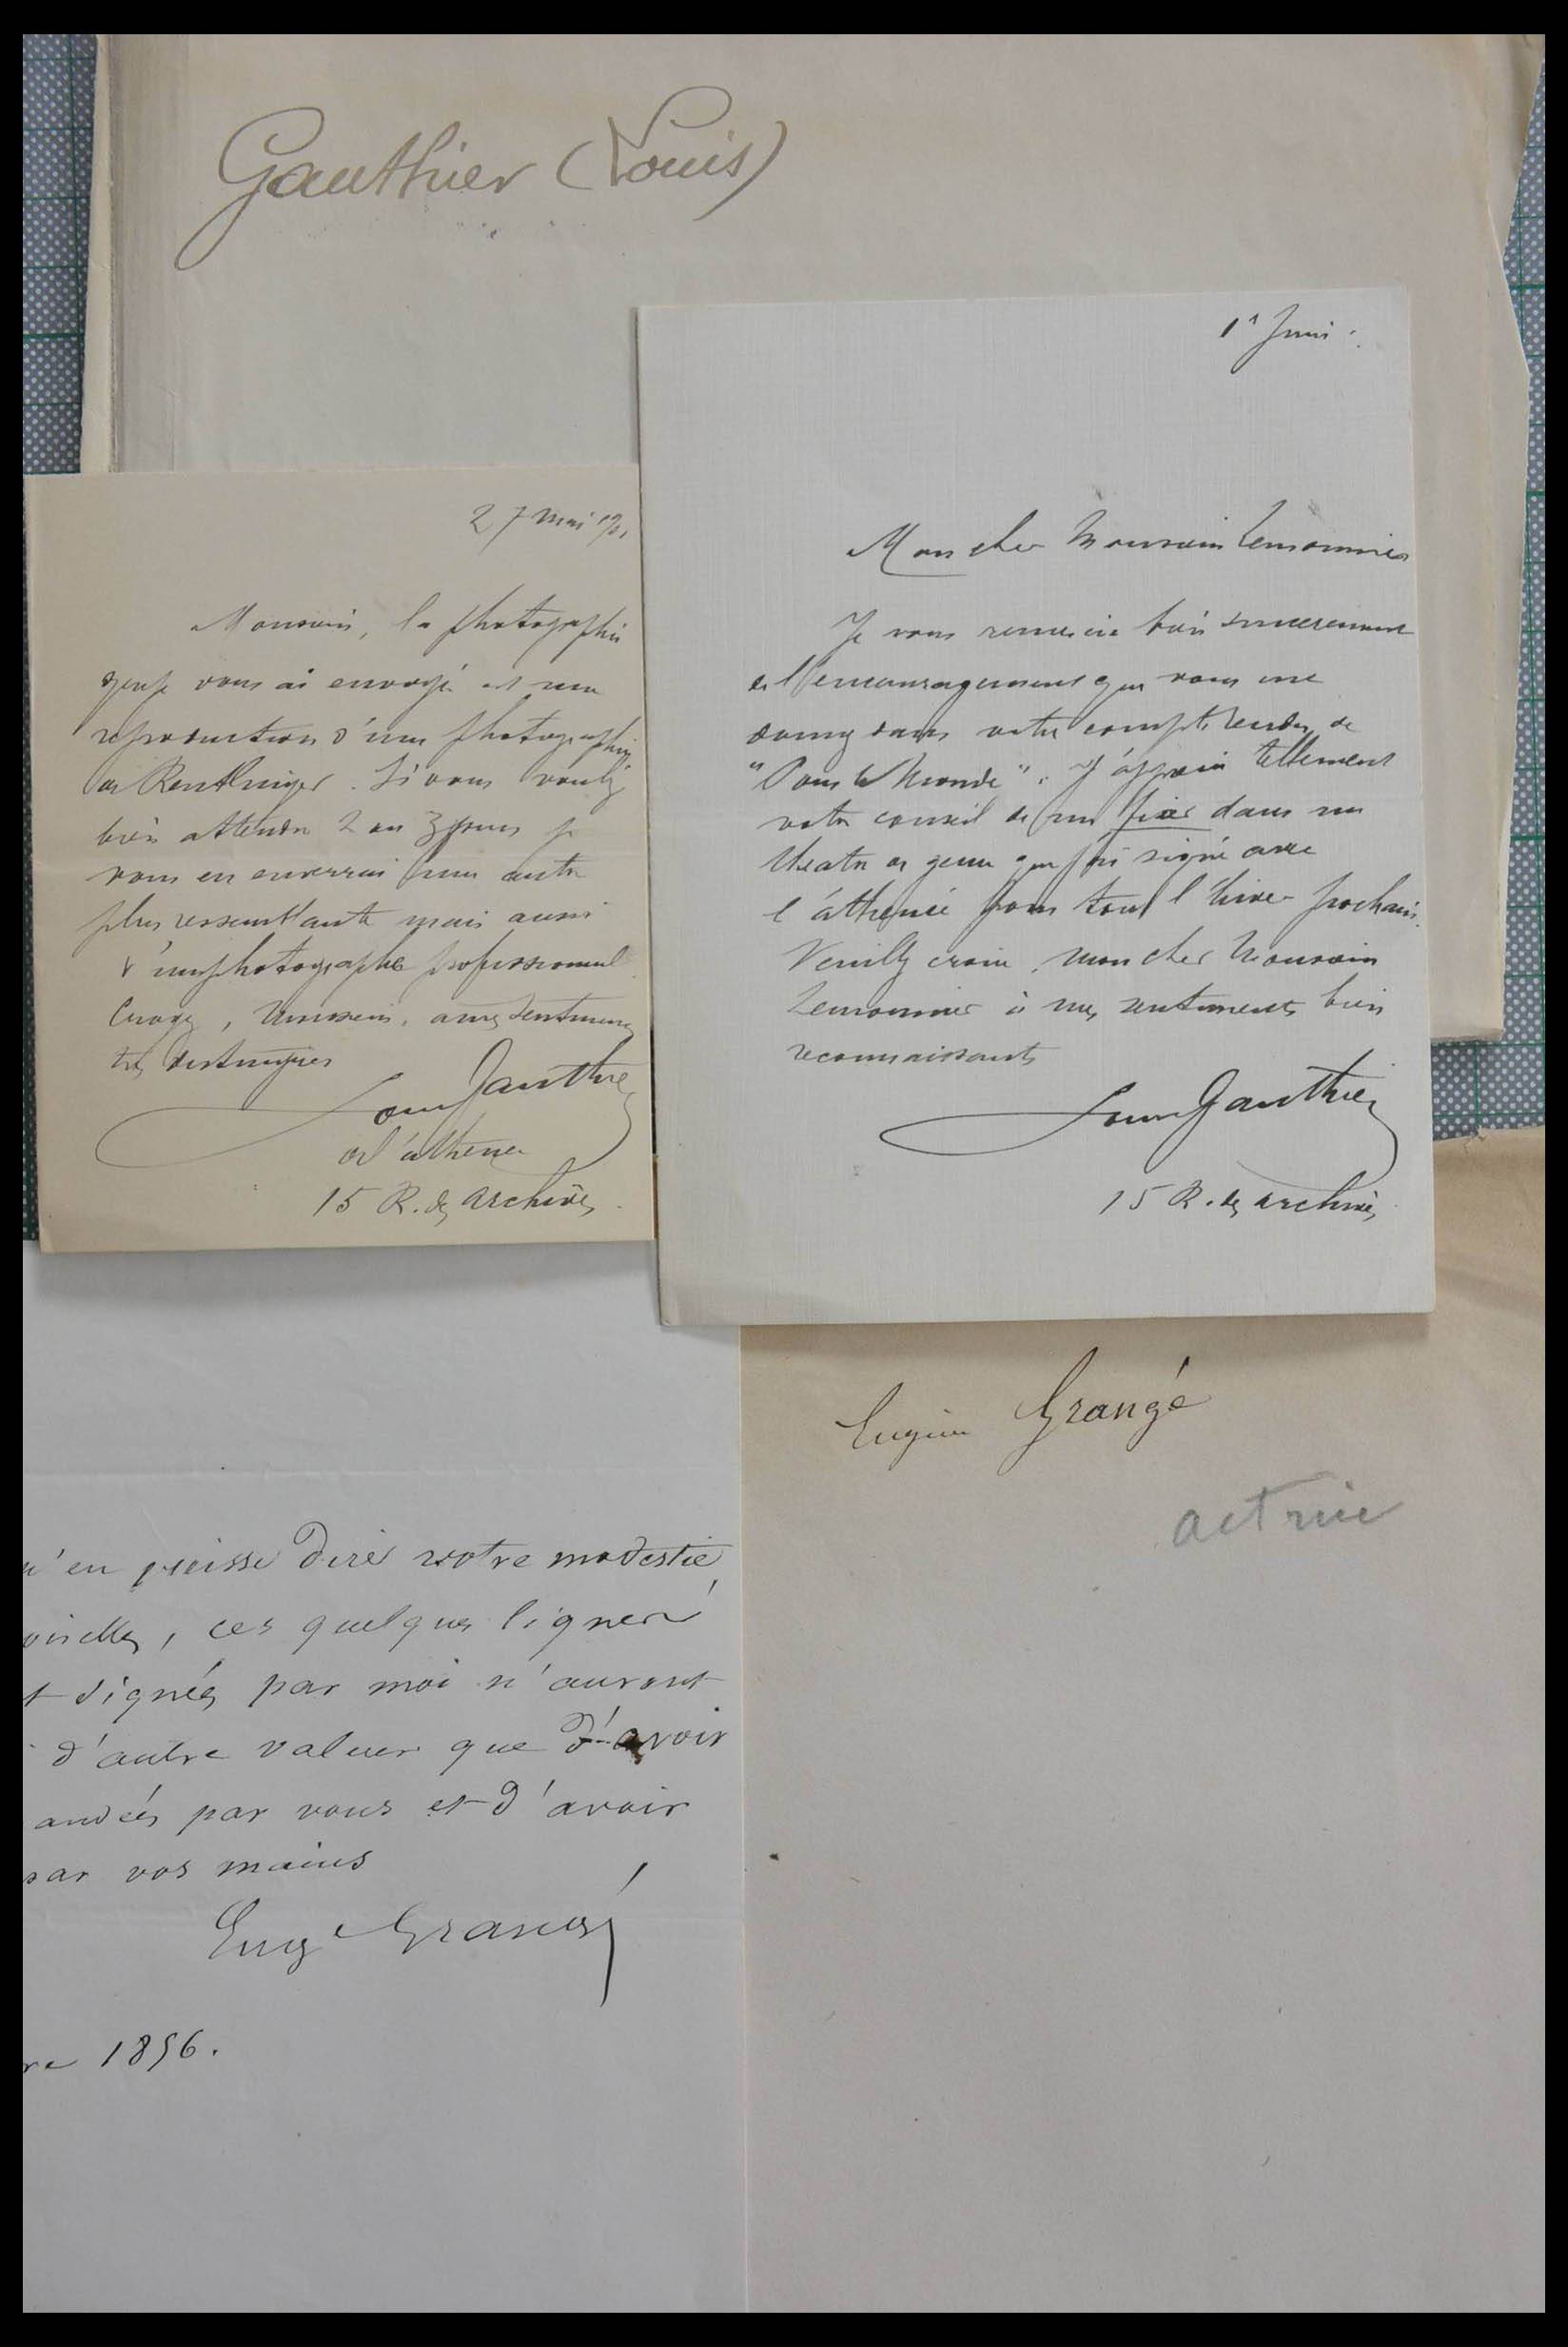 Gauthier (Louis)
27 mai
Monsieur, la photographie
que je vous ai envoyé est une
reproduction d'une photographie
de Reutlinger. Si vous voulez
bien attendre 2 ou 3 jours je
vous en enverrai une autre
plus ressemblante mais aussi
d'un photographe professionnel
Croyez, Monsieur, à mes sentiments
très distingués
Louis Gauthier
de l'athénée
15 R. des archives
1er Juin.
Mon cher Monsieur Lemonnier
Je vous remercie bien sincèrement
de l'encouragement que vous me
donnez dans votre compte rendu de
"Tout le Monde". J'apprécie tellement
votre conseil de me fixer dans un
théatre de genre que j'ai signé avec
l'athénée pour tout l'hiver prochain.
Veuillez croire, mon cher Monsieur
Lemonnier à mes sentiments bien
reconnaissants
Louis Gauthier
15 R. des archives
Eugène Grangé
actrice
u'en puisse dire votre modestie,
oiselle, ces quelques lignes
t signées par moi n'auront
d'autre valeur que d'avoir
andées par vous et d'avoir
par vos mains
Eug. Grangé
re 1856.